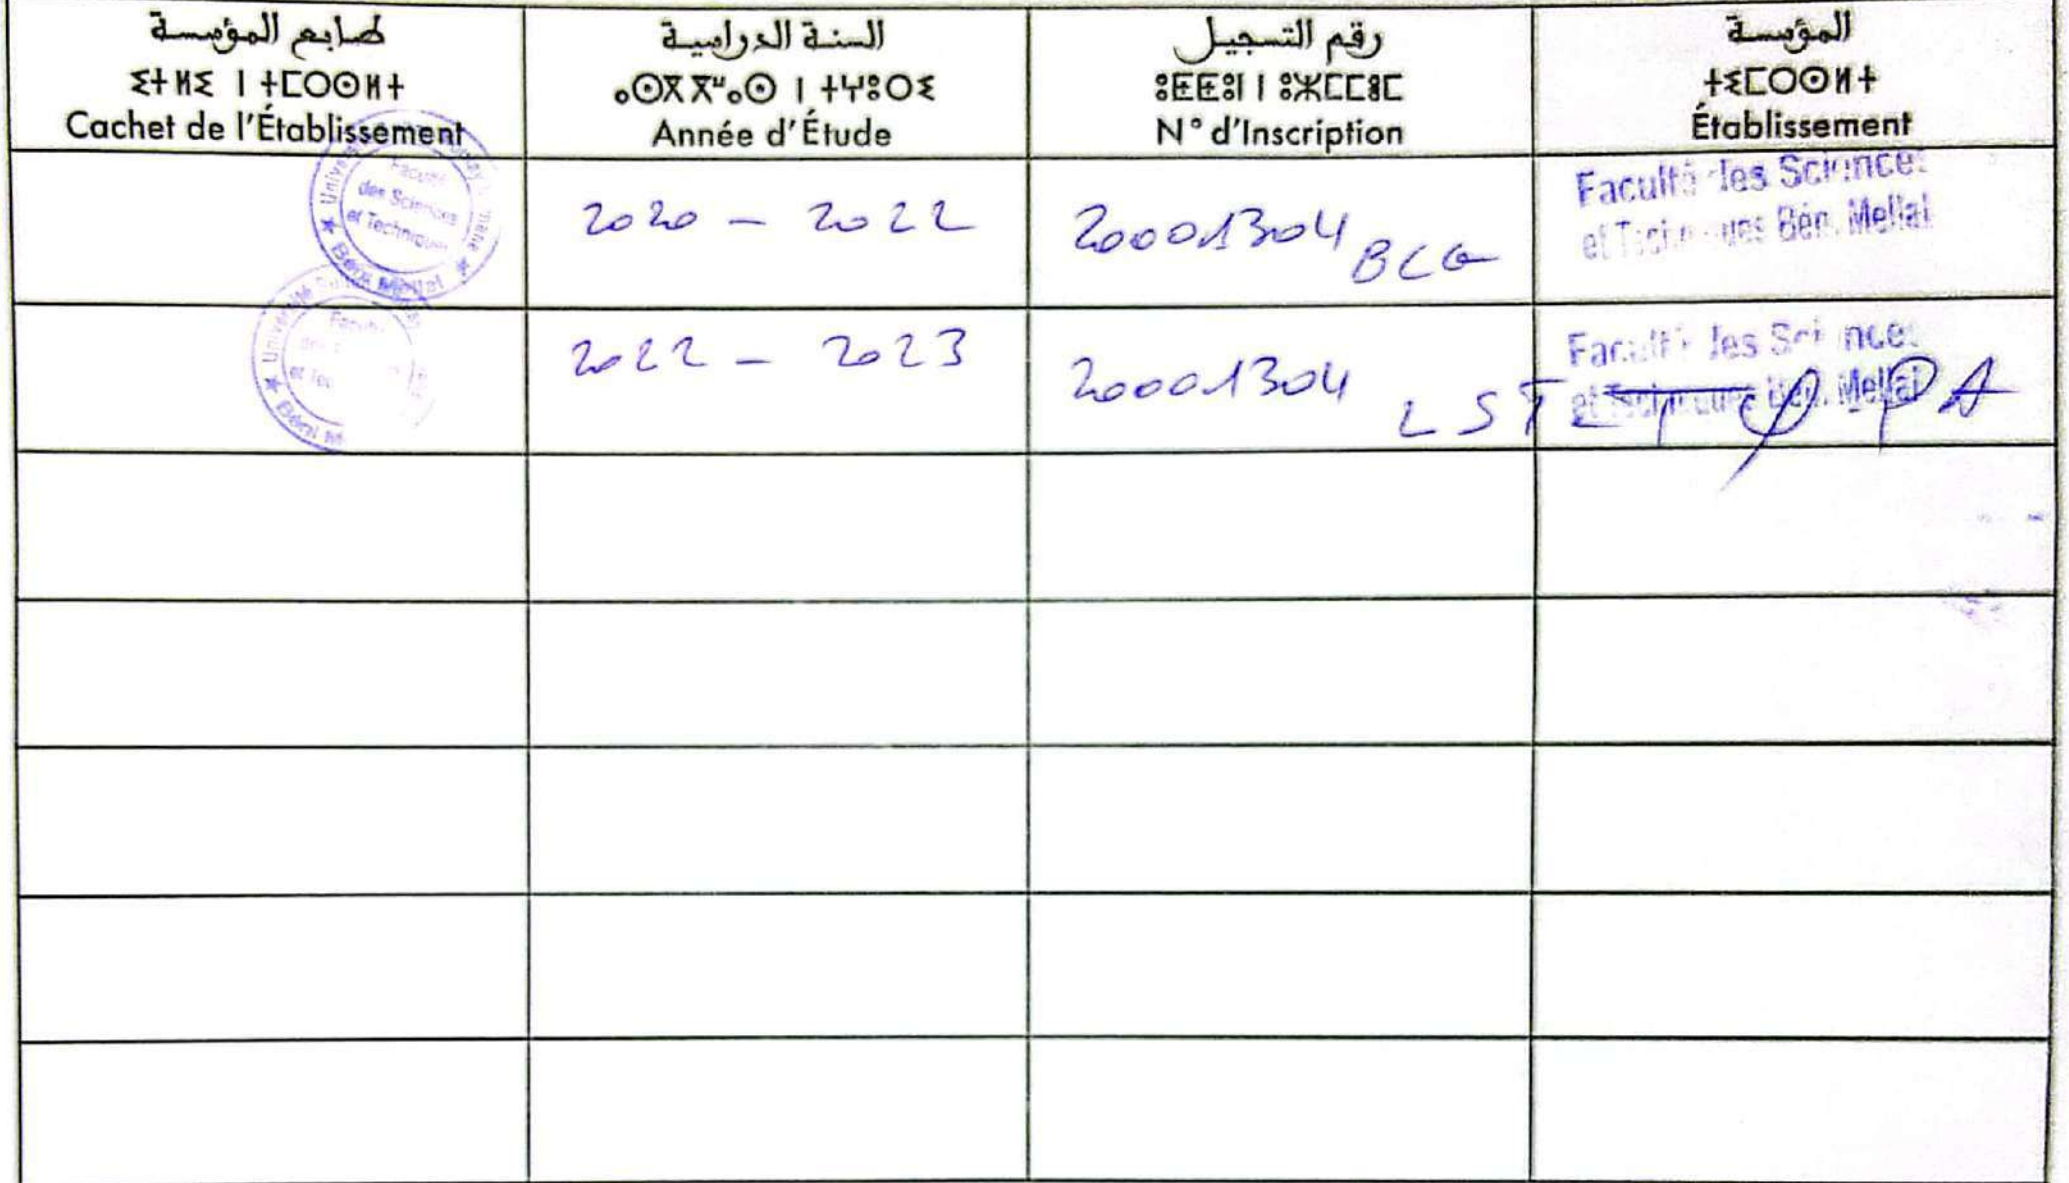 طابع المؤسسة
ⵉⵜⵍⵉ ⵏ ⵜⵎⵔⵙⵍⵜ
Cachet de l'Établissement
السنة الدراسية
ⴰⵙⴳⴳⵯⴰⵙ ⵏ ⵜⵖⵓⵔⵉ
Année d'Étude
رقم التسجيل
ⵓⵟⵟⵓⵏ ⵏ ⵓⵣⵎⵎⴻⵎ
N° d'Inscription
المؤسسة
ⵜⵉⵎⵔⵙⵍⵜ
Établissement
Faculté
des Sciences
et Techniques
Béni Mellal
2020 - 2022
20001304
BCG
Faculté des Sciences
et Techniques Béni Mellal
Université
Faculté
2022 - 2023
20001304
LST
Faculté des Sciences
et Techniques Béni Mellal